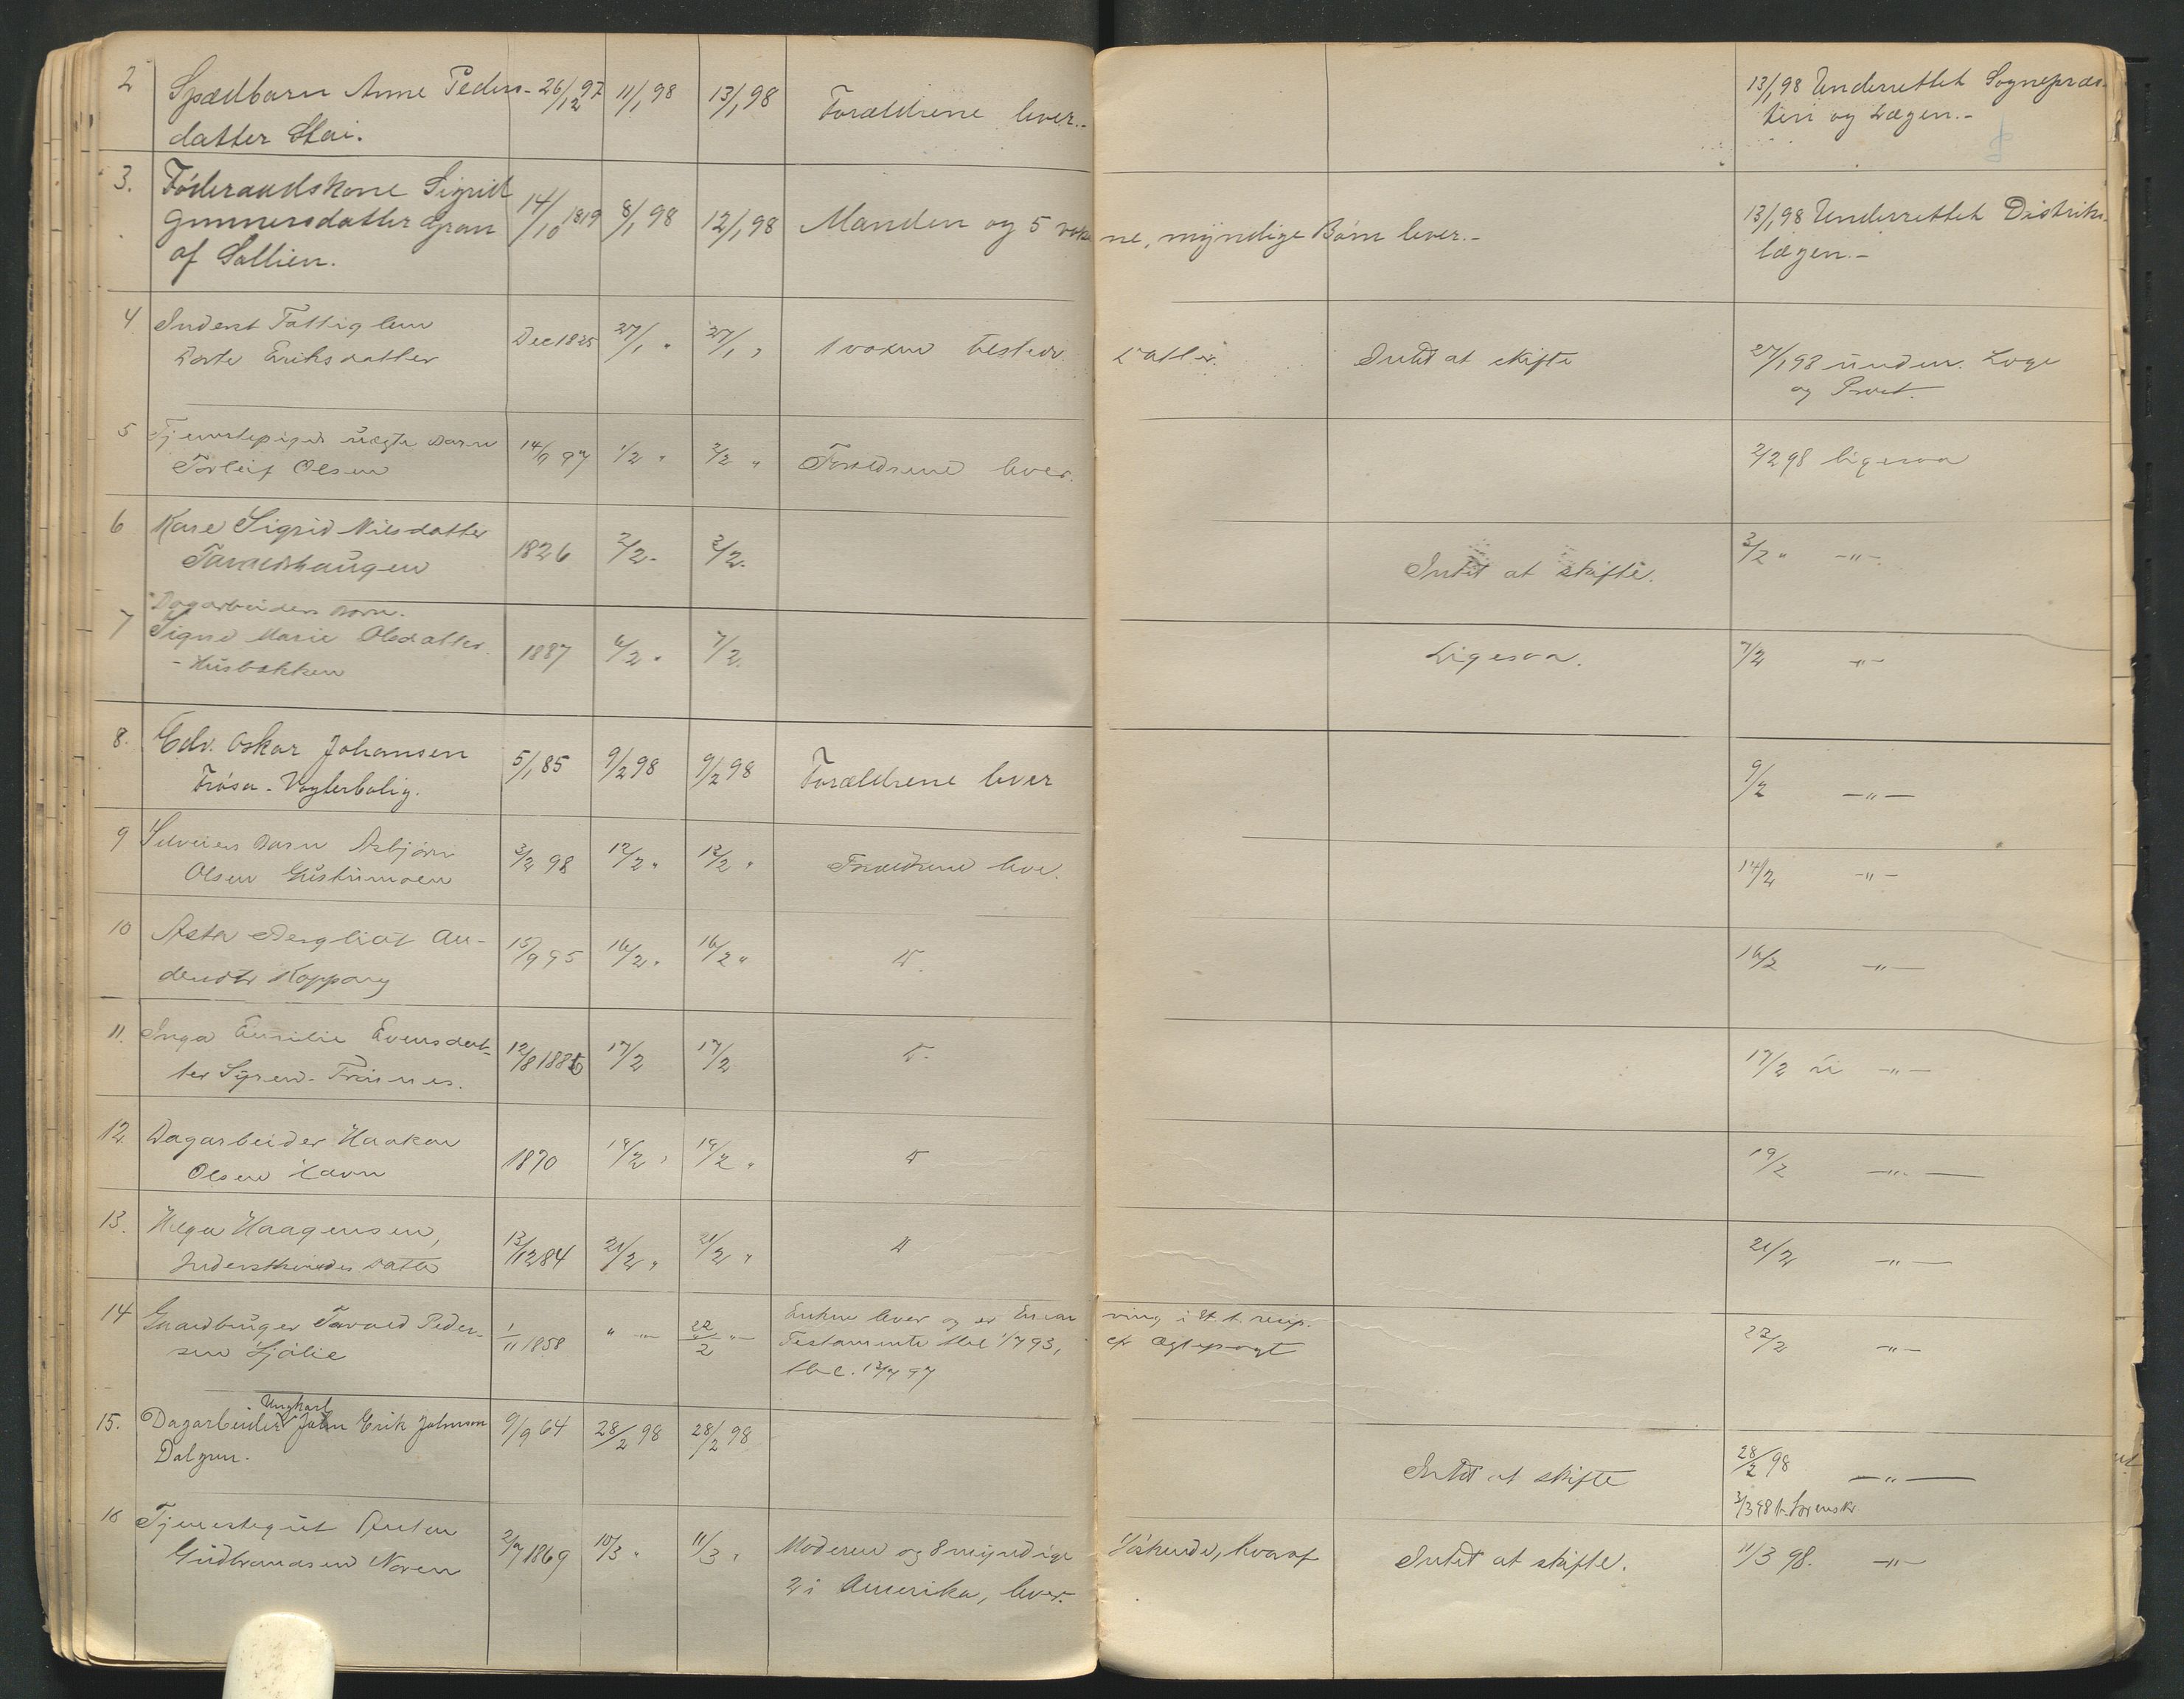 2 Spædbarn Anne Peders- 26/12 97 11/1 98 13/1 98 Forældrene lever.- 13/1 98 Underrettet Sognepræs-
datter Stai. ten og Lægen.-
3. Föderaadskone Sigrid
Gunnersdatter Gran 14/10 1819 8/1 98 12/1 98 Manden og 5 voks ne, myndige Börn lever.- 13/1 98 Underrettet Distrikts-
af Sollien. lægen.-
4 Inderst Fattiglem
Dorte Eriksdatter Dec 1825 27/1 " 27/1 " 1 voxen Datter. Intet at skifte 27/1 98 underr. Læge
og Provst.
5 Tjenestepiges uægte Barn
Torleif Olsen 14/9 97 1/2 " 2/2 " Forældrene lever. 2/2 98 ligesaa
6 Kone Sigrid Nilsdatter
1826 2/2 - 3/2. Intet at skifte. 3/2 " - " -
Dagarbeiders Barn.
7 Signe Marie Olsdatter 1887 6/2 " 7/2. Ligesaa. 7/2 - " -
- Husbakken
8. Edv. Oskar Johansen 5/1 85 9/2 98 9/2 98 Forældrene lever 9/2 - " -
- Vogterbolig.
9 Barn Asbjørn 3/2 98 12/2 " 12/2 " Forældrene leve. 14/2 - " -
Olsen
10 Asta Bergliot An- 15/9 95 16/2 " 16/2 " 16/2 - " -
Koppang
11. Inga Emilie Evensdat- 12/8 1886 17/2 17/2 17/2 - " -
ter
12. Dagarbeider Haakon 1870 19/2 " 19/2 " 19/2 - " -
Olsen
13. Helga Haagensen, 13/12 84 21/2 " 21/2 " 21/2 - " -
Datter
14 Gaardbruger Tarald Peder- 1/11 1858 " - 22/2 " - Enken lever og er
sen Sjölie Testamente 1/7 93, cfr Ægtepagt 22/2 - " -
13/7 97
Ungkarl
15. Dagarbeider John Erik Johnson 9/9 64 28/2 98 28/2 98
Dalgren. Intet at skifte 28/2 98 - " -
3/3 98 t. Sorenskr.
16 Tjenestegut Anton 2/7 1869 10/3 " 11/3 " Moderen og 8 myndige Söskende, hvoraf Intet at skifte. 11/3 98. - " -
Gudbrandsen Noren 2 i Amerika, lever.